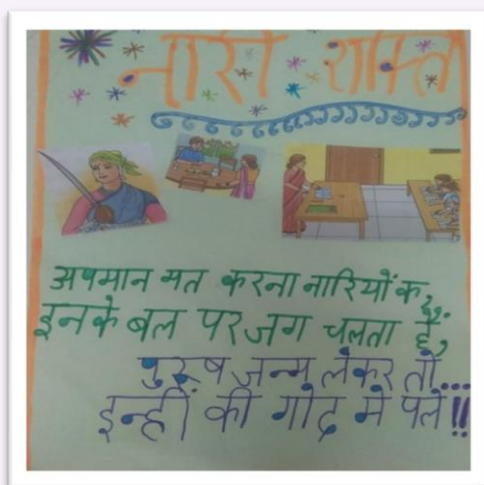 नारी शक्ति
अपमान मत करना नारियों का,
इनके बल पर जग चलता है,
पुरूष जन्म लेकर तो...
इन्हीं की गोद मे पले !!